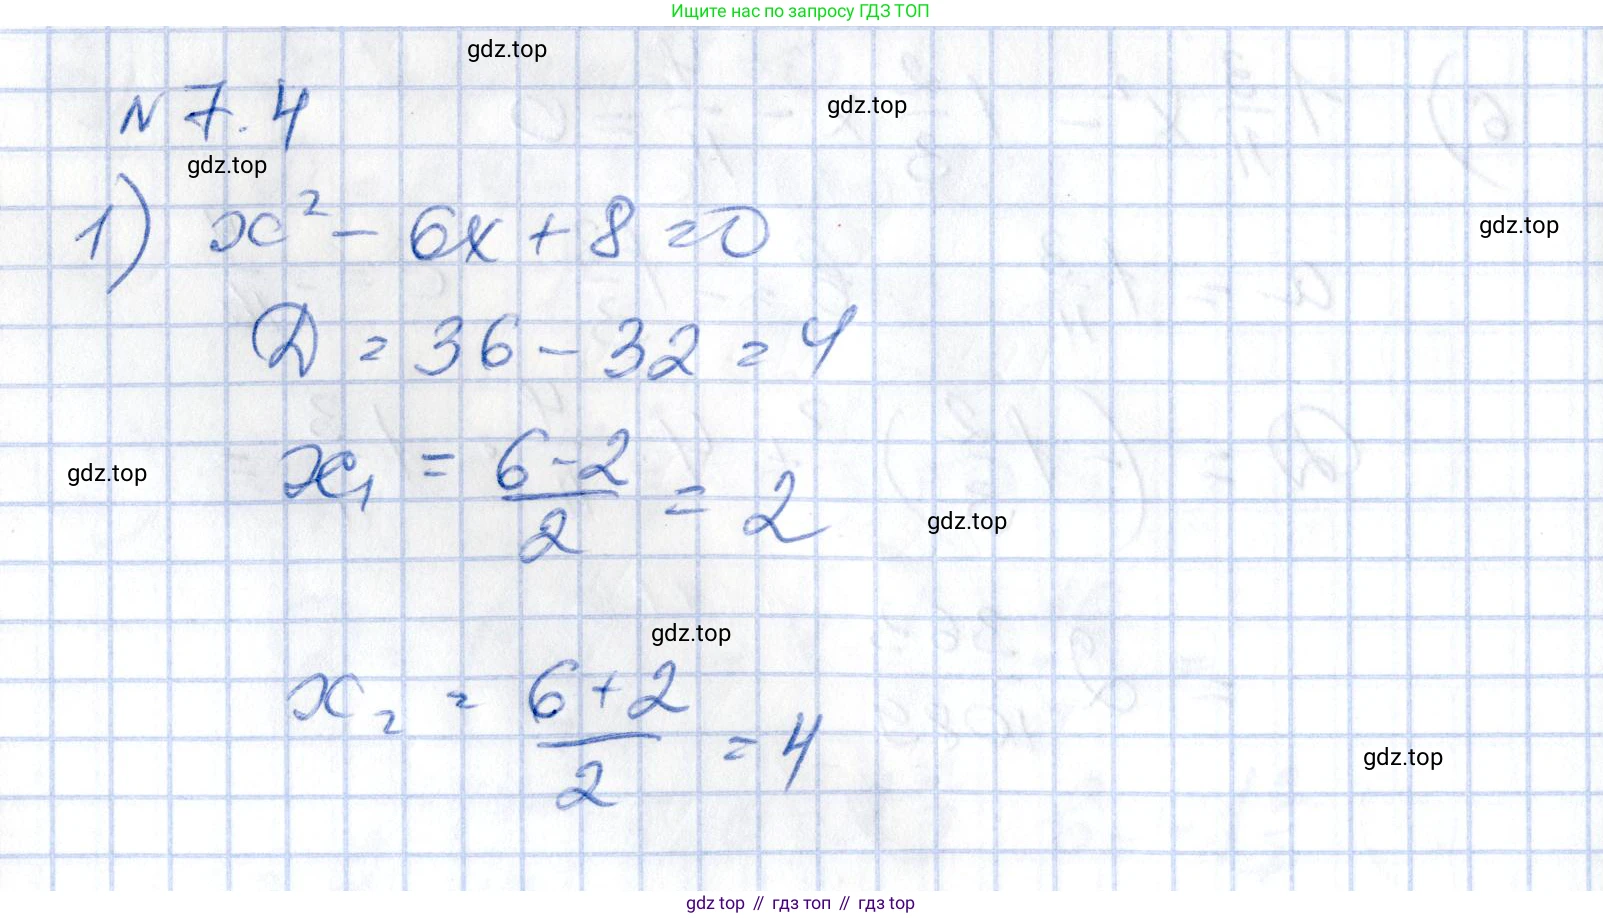 Ищите нас по запросу ГДЗ ТОП
gdz.top
N 7.4
gdz.top
gdz.top
1) x² - 6x + 8 = 0
gdz.top
D = 36 - 32 = 4
x₁ = (6-2)/2 = 2
gdz.top
gdz.top
gdz.top
x₂ = (6+2)/2 = 4
gdz.top
gdz top // гдз топ // гдз top